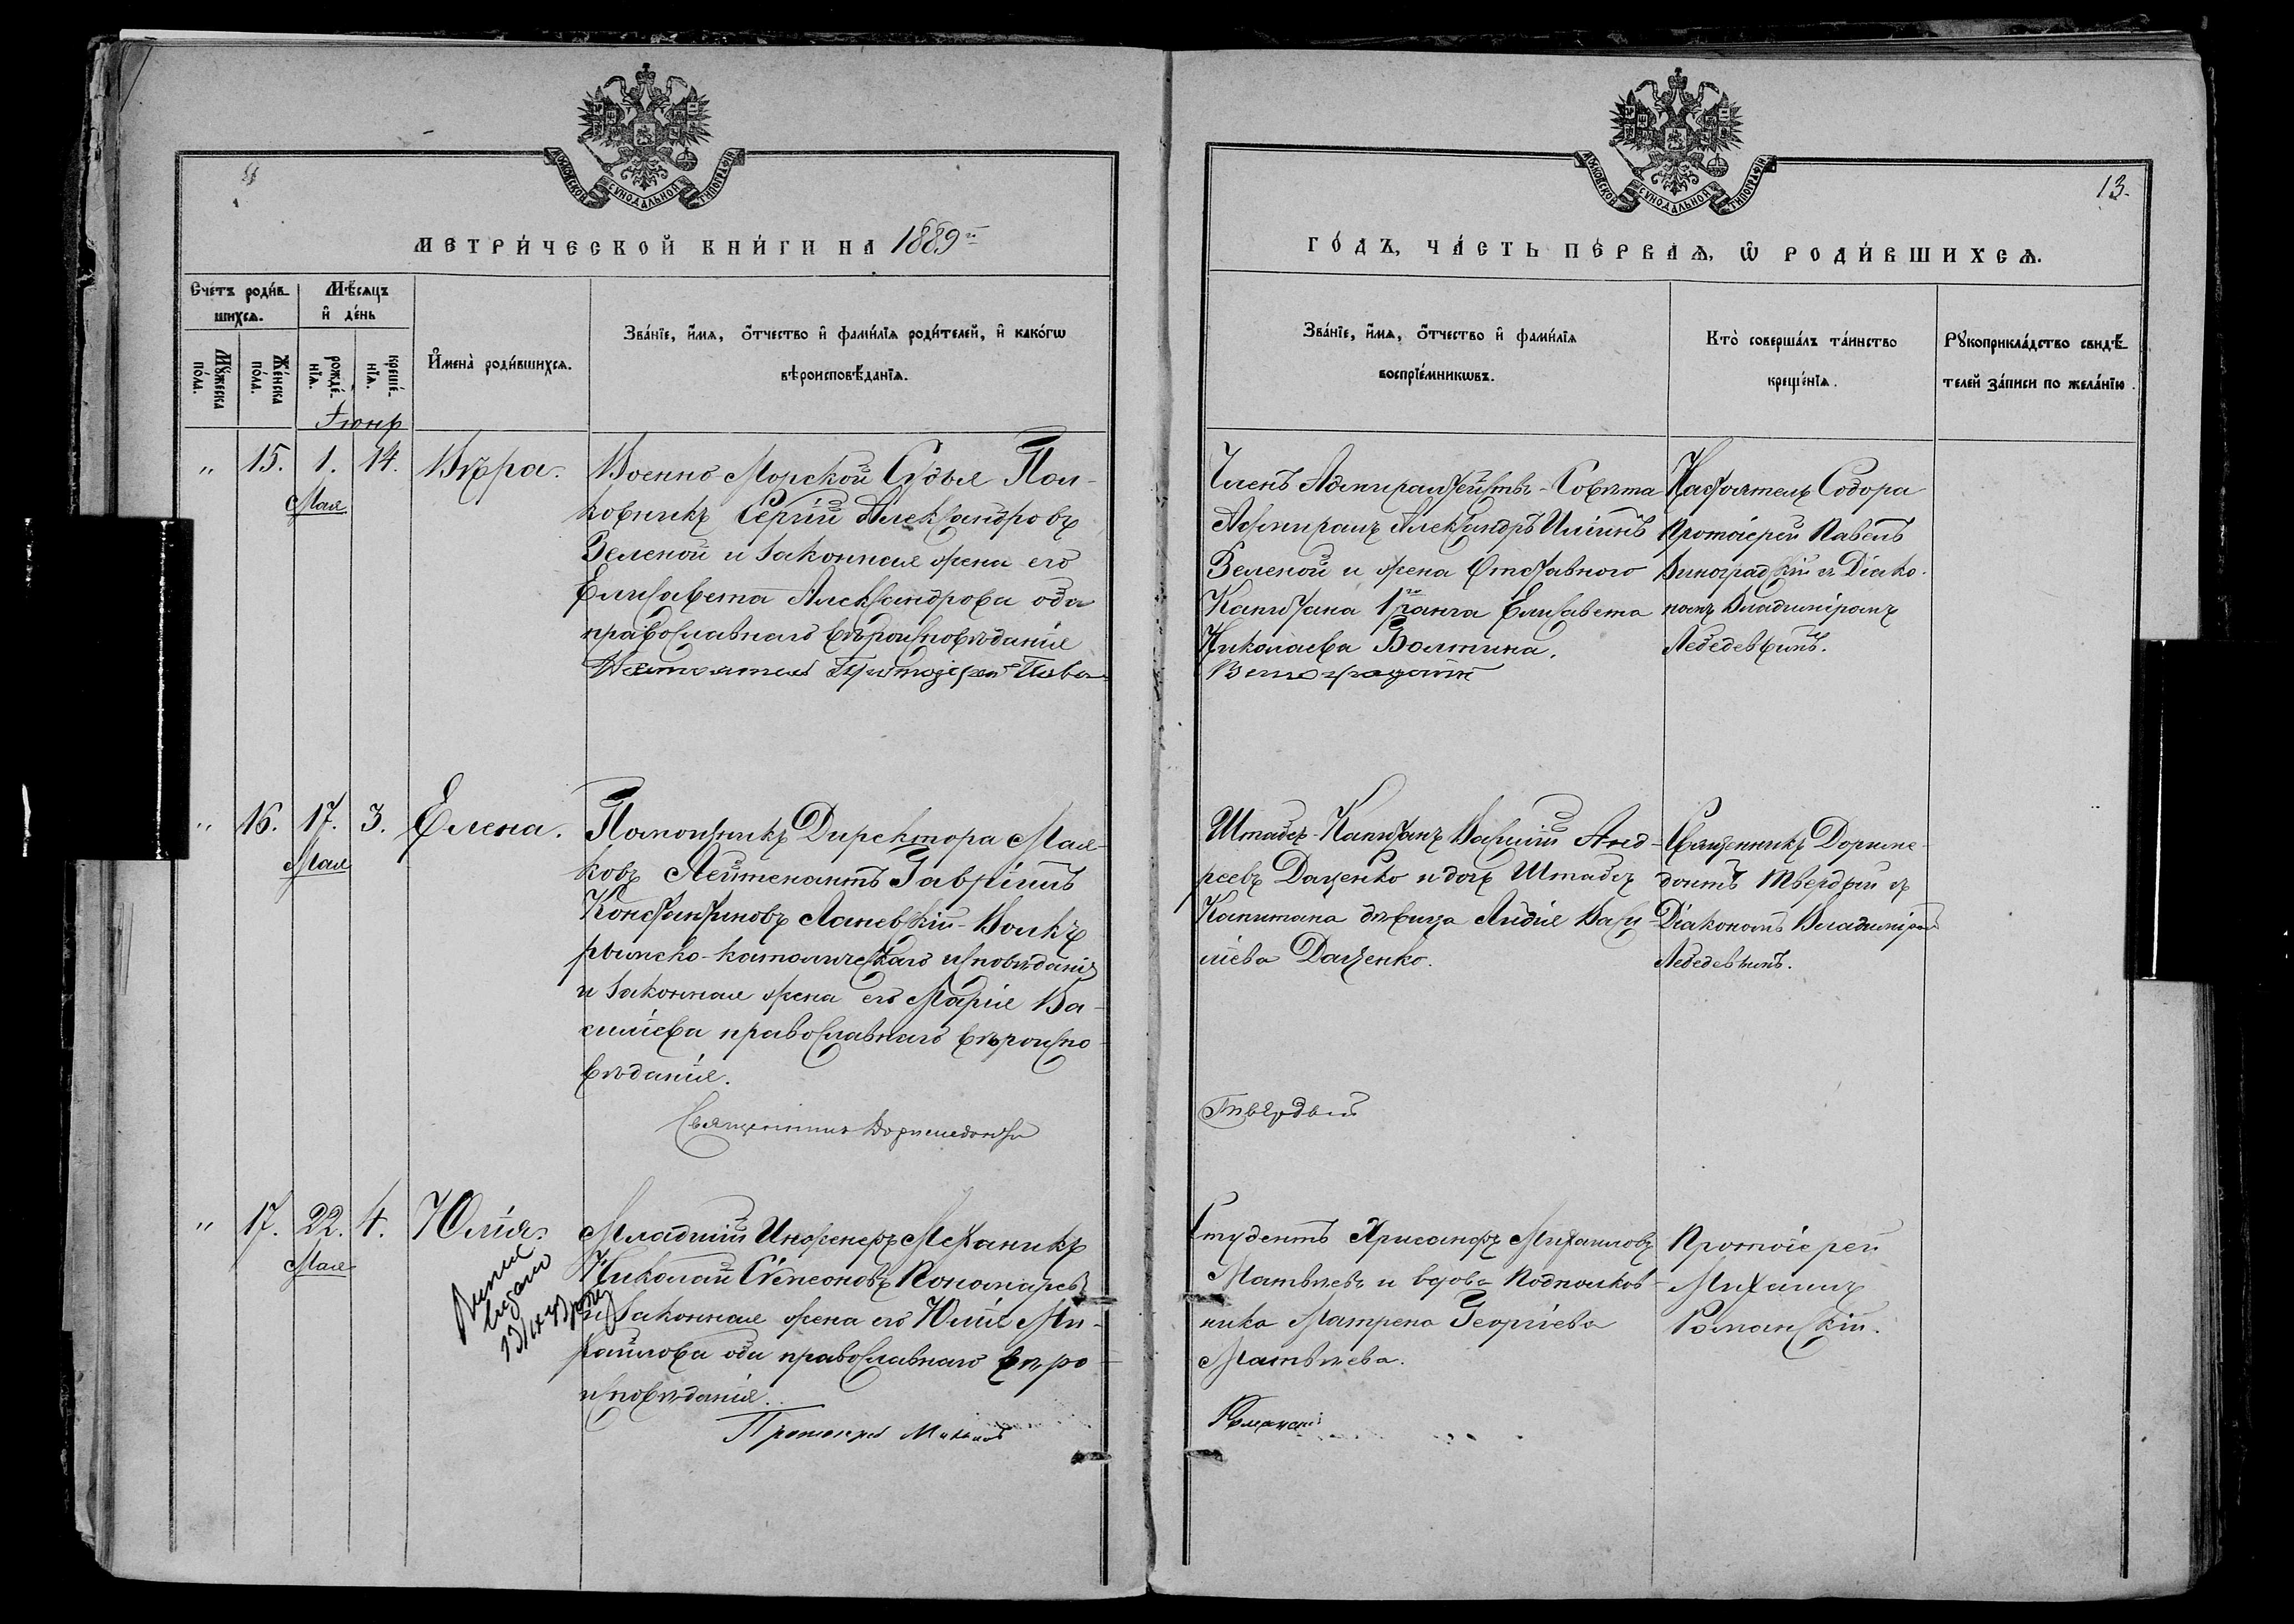 ДꙊХОВСКОЙ СѴНОДАЛЬНОЙ ТИПОГРАФІИ
МЕТРИ́ЧЕСКОЙ КНИ́ГИ НА 1889й
Сче́тъ роди́в-
шихсѧ.
Мѣ́сѧцъ
и҆ де́нь
И҆мена̀ роди́вшихсѧ.
Зва́нїе, и҆́мѧ, ѻ҆́тчество и҆ фами́лїѧ роди́телей, и҆ како́гѡ
вѣроисповѣ́данїѧ.
Мꙋ́жеска
по́ла.
Же́нска
по́ла.
рожде́-
нїѧ.
креще́-
нїѧ.
Іюнь
„ 15. 1. 14. Вѣра.
Мая
Военно-Морской Судья Пол-
ковникъ Сергій Александровъ
Зеленой и законная жена его
Елисавета Александрова оба
православнаго вѣроисповѣданія
Настоятель Протоіерей Павелъ
„ 16. 17. 3. Елена.
Мая
Помощникъ Директора Мая-
ковъ Лейтенантъ Гавріилъ
Константиновъ Ланевскій-Волкъ
римско-католическаго исповѣданія
и законная жена его Марія Ва-
силіева православнаго вѣроиспо-
вѣданія.
Священникъ Доримедонтъ
„ 17. 22. 4. Юлія.
Мая
выдано
Младшій Инженеръ-Механикъ
Николай Сѵмеоновъ Пономаревъ
и законная жена его Юлія Ми-
хаилова оба православнаго вѣро-
исповѣданія.
Протоіерей Михаилъ
ДꙊХОВСКОЙ СѴНОДАЛЬНОЙ ТИПОГРАФІИ
13.
ГО́ДЪ, ЧА́СТЬ ПЕ́РВАѦ, Ѡ҆ РОДИ́ВШИХСѦ.
Зва́нїе, и҆́мѧ, ѻ҆́тчество и҆ фами́лїѧ
воспрїе́мникѡвъ.
Кто̀ соверша́лъ та́инство
креще́нїѧ.
Рꙋкоприкла́дство свидѣ́-
телей за́писи по жела́нїю.
Членъ Адмиралтействъ-Совѣта
Адмиралъ Александръ Иліинъ
Зеленой и жена Отставного
Капитана 1го ранга Елисавета
Николаева Болтина.
Виноградовъ
Настоятель Собора
Протоіерей Павелъ
Виноградскій съ Діако-
номъ Владиміромъ
Лебедевымъ.
Штабсъ-Капитанъ Василій Анд-
реевъ Даценко и дочь Штабсъ
Капитана дѣвица Лидія Васи-
ліева Даценко.
Твердый
Священникъ Дориме-
донтъ Твердый съ
Діакономъ Владиміромъ
Лебедевымъ.
Студентъ Хрисанфъ Михаиловъ
Матвѣевъ и вдова Подполков-
ника Матрена Георгіева
Матвѣева.
Романскій
Протоіерей
Михаилъ
Романскій.